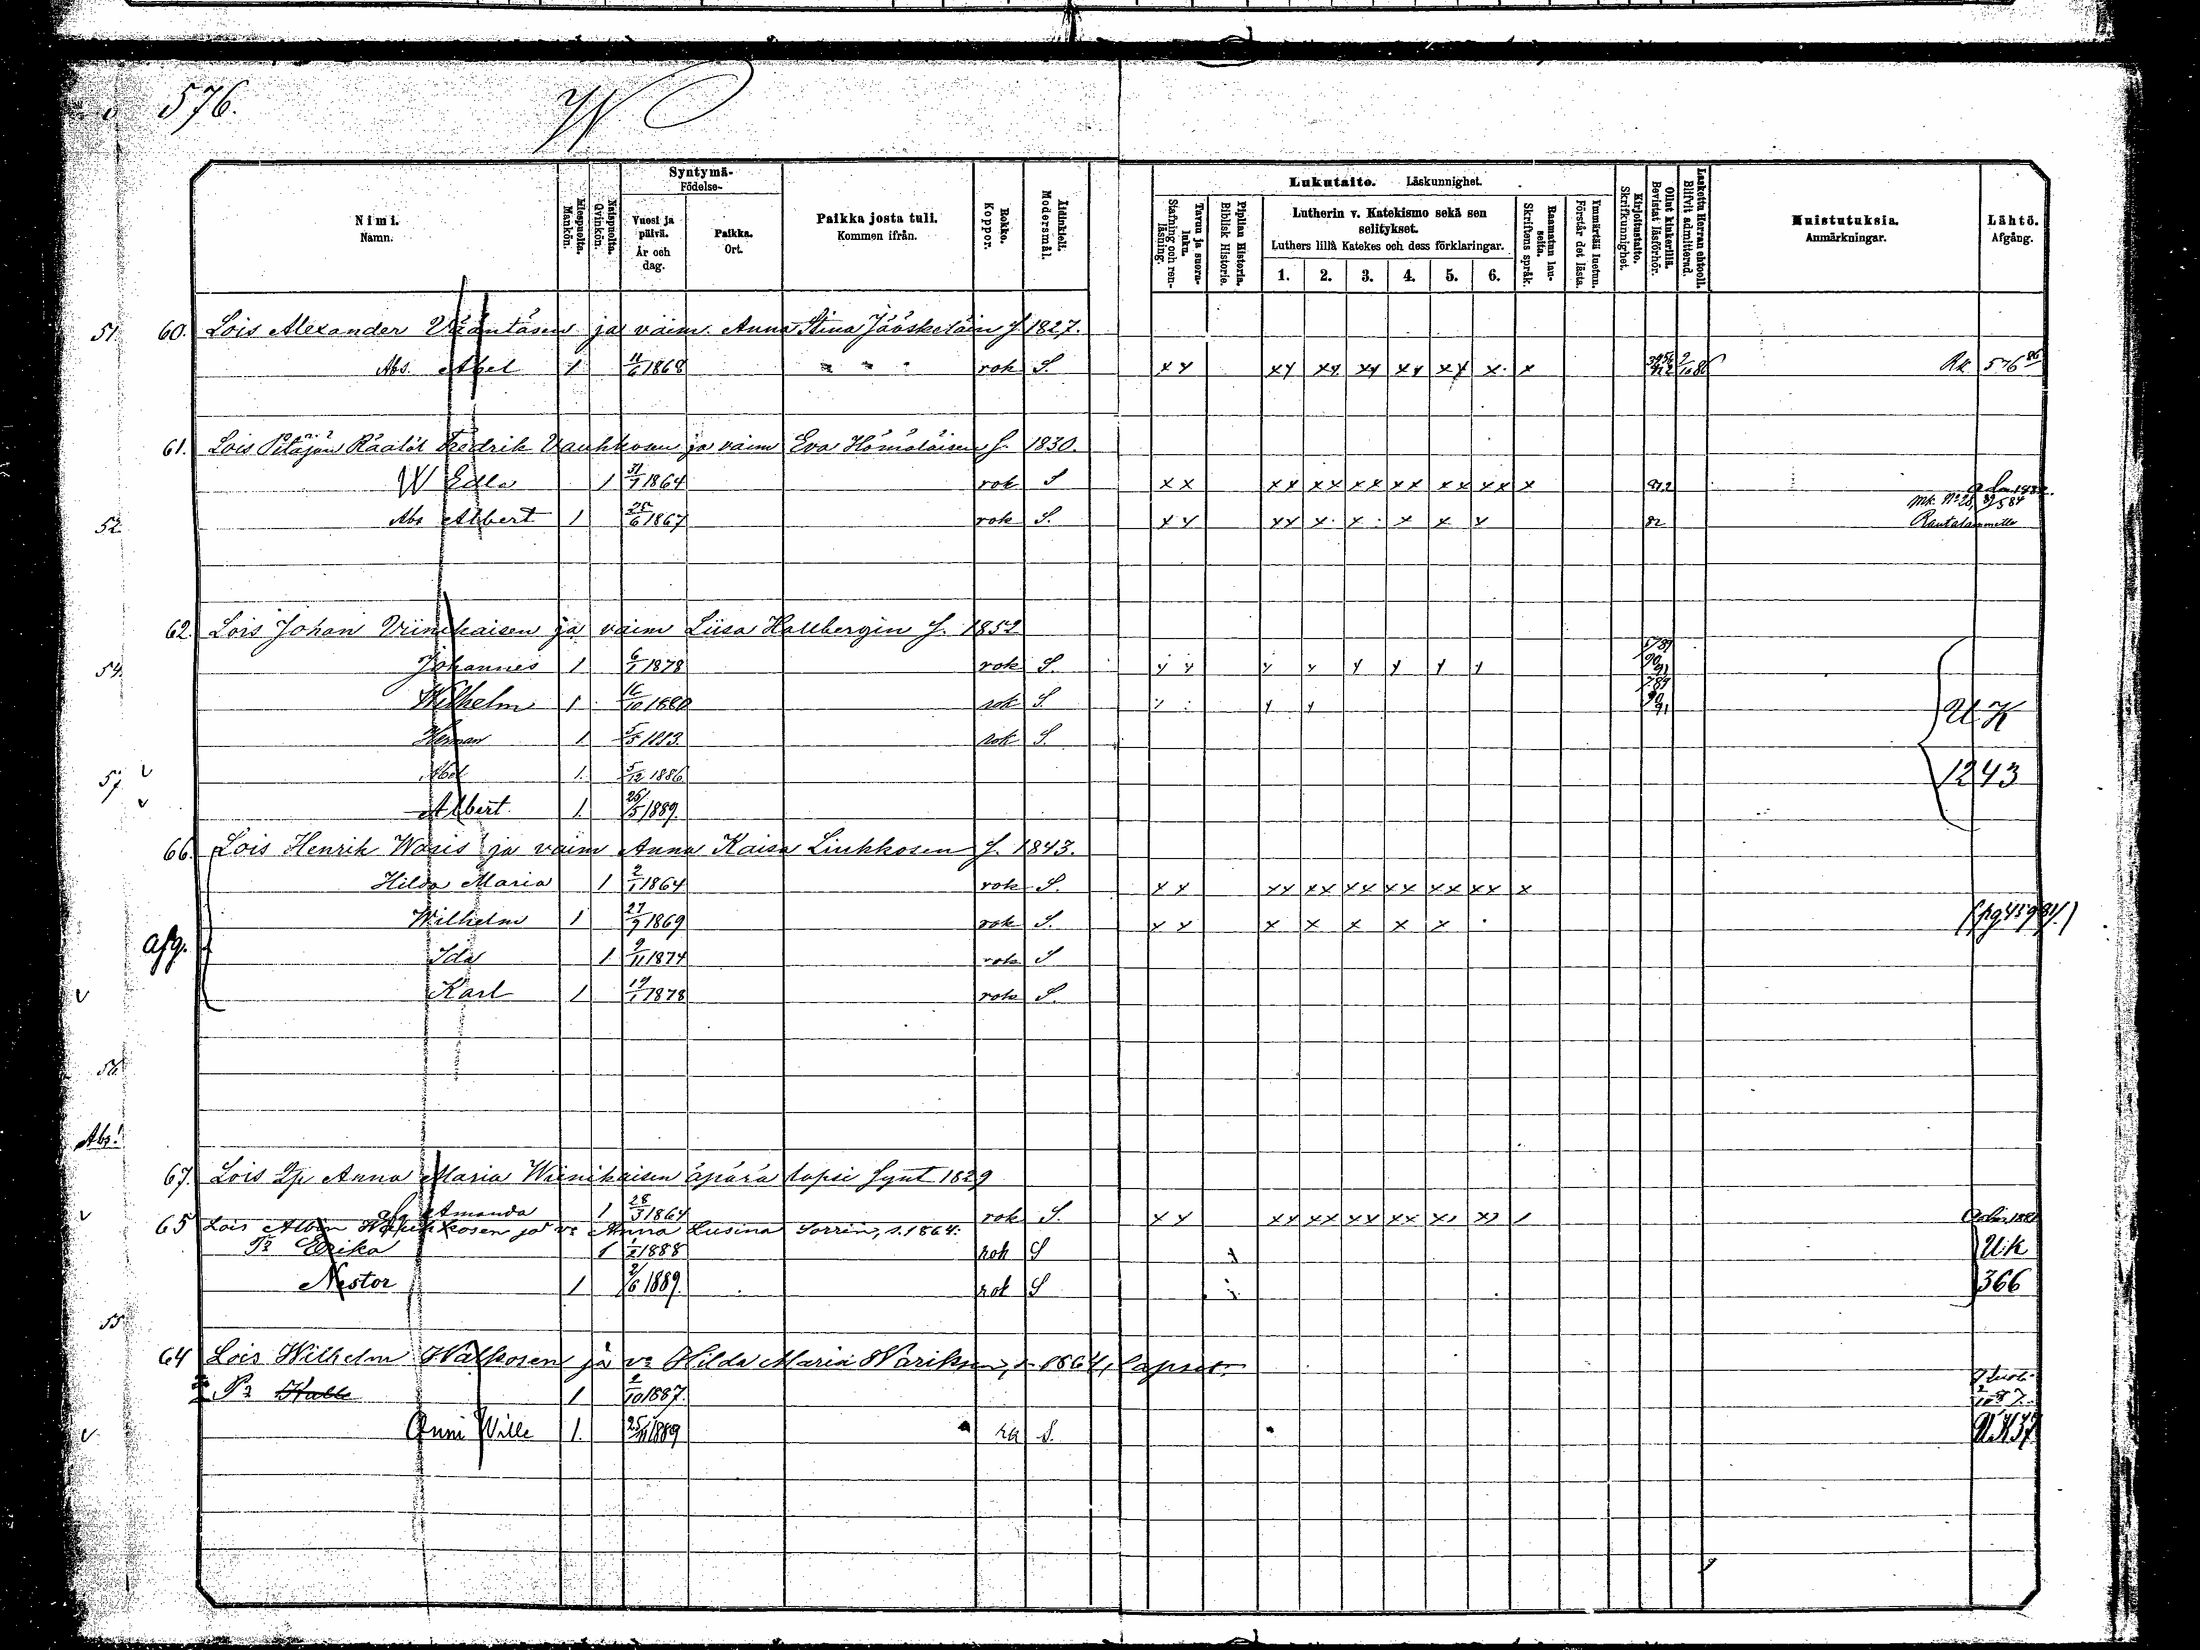 576.
W
Nimi.
Namn.
Miespuolta.
Mankön.
Naispuolta.
Qvinkön.
Syntymä-
Födelse-
Vuosi ja päivä.
År och dag.
Paikka.
Ort.
Paikka josta tuli.
Kommen ifrån.
Rokko.
Koppor.
Äidinkieli.
Modersmål.
Lukutaito. Läskunnighet.
Tavuu ja suora-luku.
Stafning och ren-läsning.
Piplian Historia.
Biblisk Historie.
Lutherin v. Katekismo sekä sen selitykset.
Luthers lilla Katekes och dess förklaringar.
1. 2. 3. 4. 5. 6.
Raamatun lauseita.
Skriftens språk.
Ymmärtää luetun.
Förstår det lästa.
Kirjoitustaito.
Skrifkunnighet.
Ollut kinkerillä.
Bevistat läsförhör.
Laskettu Herran ehtooll.
Blifvit admitterad.
Muistutuksia.
Anmärkningar.
Lähtö.
Afgång.
51. 60. Lois Alexander Vääntäsen ja vaim. Anna Stina Jääskeläin f. 1827.
Abs. Abel 1 11/6 1868 rok S. x y xy xx xy xy xy x x Rk 576 86
61. Lois Pitäjän Räätöl Fredrik Vauhkosen ja vaim Eva Hämäläisen f. 1830.
W Edla 1 31/1 1864 rok S x x xx xx xx xx xx xx x 812
52. Abs Albert 1 25/6 1867 rok S. x y xx x x x x x 82 Rautalammille
62. Lois Johan Viinikaisen ja vaim Liisa Hallbergin f. 1852
54. Johannes 1 6/1 1878 rok S. y y y y y y y y 90 91
Wilhelm 1 16/10 1880 rok S y y 90 91 UK
Herman 1 5/5 1883. rok S.
57 v Abel 1. 5/12 1886 1243
v Albert 1. 25/5 1889.
66. Lois Henrik Wasis ja vaim Anna Kaisa Liukkosen f. 1843.
Hilda Maria 1 2/1 1864 rok S. x y xy xx xx xx xx xx x
Wilhelm 1 27/9 1869 rok S. x x x x x x x (pg 459 81.)
afg. Ida 1 9/11 1874 rok S
v Karl 1 19/1 1878 rok S.
56
Abs!
67. Lois Ip Anna Maria Wiinikaisen äpärä lapsi synt 1829
v afg Amanda 1 28/3 1864 rok S. x y xx xx xx xx
65 Lois Albin Wauhkosen ja vo Anna Lusina Sorrin, s. 1864.
Tr Erika 1 1/2 1888 rok S U.K
Nestor 1 2/6 1889. rok S 366
55
64 Lois Wilhelm Walkosen ja vo Hilda Maria Wariksen, s. 1864, lapset.
Pr Kalle 1 2/10 1887. 2/10 87.
v Onni Wille 1. 25/11 1889 S. U.K 37